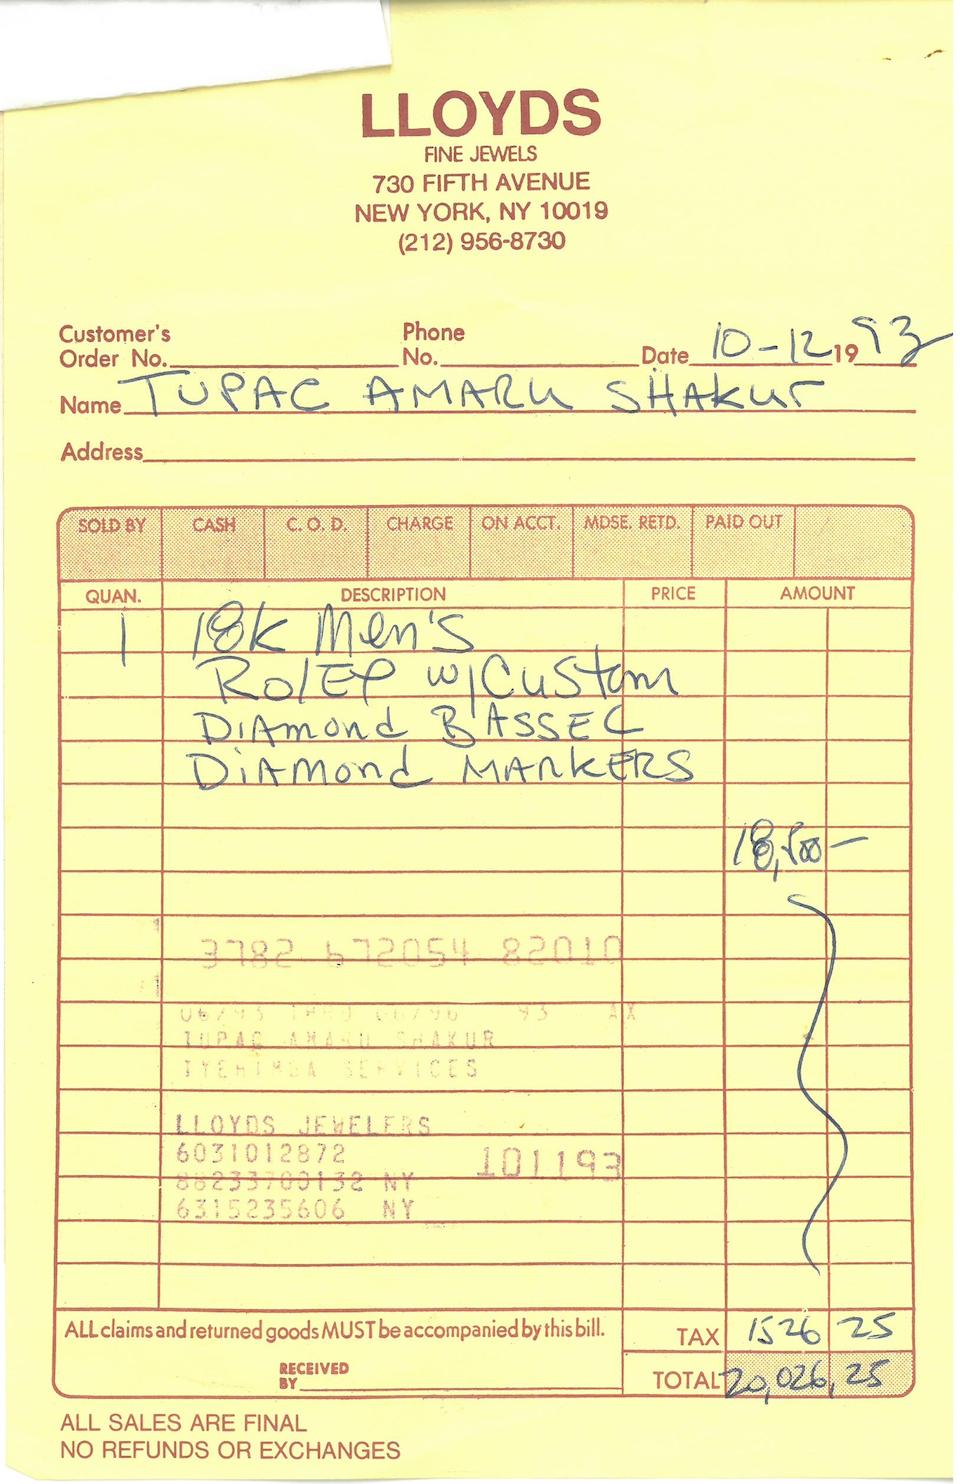 LLOYDS
FINE JEWELS
730 FIFTH AVENUE
NEW YORK, NY 10019
(212) 956-8730
Customer's Order No. Phone No. Date 10-12 19 93
Name TUPAC AMARU SHAKUR
Address
SOLD BY CASH C. O. D. CHARGE ON ACCT. MDSE. RETD. PAID OUT
QUAN. DESCRIPTION PRICE AMOUNT
1 18K Men's
RolEP w/Custom
DiAmond BASSEC
DiAMOnd MARKERS
18,500-
3782 672054 82010
06/93 THRU 06/96 93 AX
TUPAC AMARU SHAKUR
SERVICES
LLOYDS JEWELERS
6031012872 101193
NY
6315235606 NY
ALL claims and returned goods MUST be accompanied by this bill. TAX 1526 25
RECEIVED BY TOTAL 20,026,25
ALL SALES ARE FINAL
NO REFUNDS OR EXCHANGES